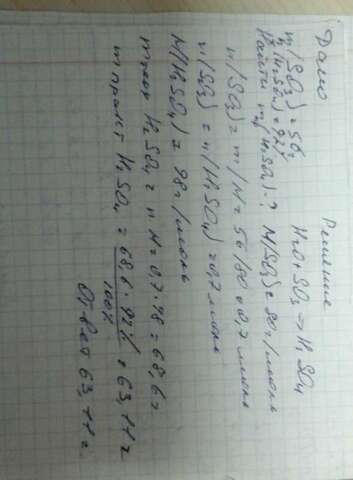 Дано
m(SO3) = 56г
η(H2SO4) = 92%
Найти m(H2SO4)-?
Решение
H2O + SO3 → H2SO4
M(SO3) = 80г/моль
n(SO3) = m/M = 56/80 = 0,7 моль
n(SO3) = n(H2SO4) = 0,7 моль
M(H2SO4) = 98г/моль
m теор H2SO4 = n·M = 0,7·98 = 68,6г
m практ H2SO4 = 68,6·92% / 100% = 63,11г
Ответ 63,11г.